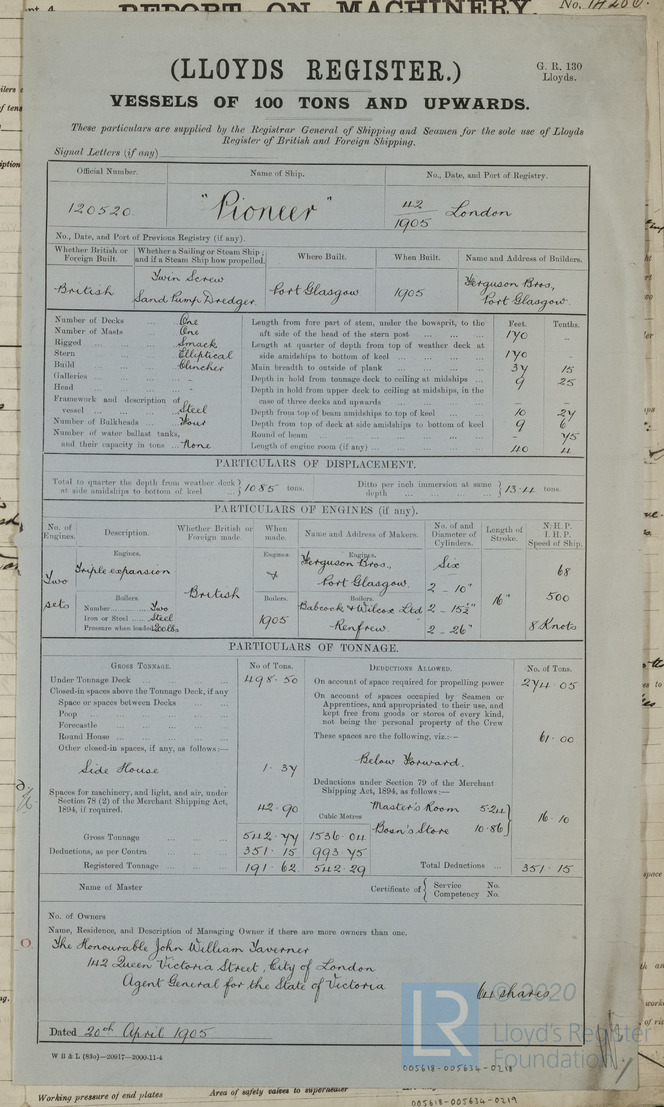 REPORT ON MACHINERY.
No.
(LLOYDS REGISTER.)
G. R. 130
Lloyds.
VESSELS OF 100 TONS AND UPWARDS.
These particulars are supplied by the Registrar General of Shipping and Seamen for the sole use of Lloyds
Register of British and Foreign Shipping.
Signal Letters (if any)
Official Number. Name of Ship. No., Date, and Port of Registry.
120520. "Pioneer" 42/1905 London
No., Date, and Port of Previous Registry (if any).
Whether British or Foreign Built. Whether a Sailing or Steam Ship; and if a Steam Ship how propelled. Where Built. When Built. Name and Address of Builders.
British Twin Screw Sand Pump Dredger. Port Glasgow 1905 Ferguson Bros, Port Glasgow.
Feet. Tenths.
Number of Decks ... One
Number of Masts ... One
Rigged ... Smack
Stern ... Elliptical
Build ... Clincher
Galleries ... -
Head ... -
Framework and description of
vessel ... Steel
Number of Bulkheads ... Four
Number of water ballast tanks,
and their capacity in tons ... None
Length from fore part of stem, under the bowsprit, to the
aft side of the head of the stern post ... 170 -
Length at quarter of depth from top of weather deck at
side amidships to bottom of keel ... 170 -
Main breadth to outside of plank ... 37 15
Depth in hold from tonnage deck to ceiling at midships ... 9 25
Depth in hold from upper deck to ceiling at midships, in the
case of three decks and upwards ... - -
Depth from top of beam amidships to top of keel ... 10 27
Depth from top of deck at side amidships to bottom of keel 9 6
Round of beam ... - 75
Length of engine room (if any) ... 40 4
PARTICULARS OF DISPLACEMENT.
Total to quarter the depth from weather deck at side amidships to bottom of keel ... 1085 tons. Ditto per inch immersion at same depth ... 13.4 tons.
PARTICULARS OF ENGINES (if any).
No. of Engines. Description. Whether British or Foreign made. When made. Name and Address of Makers. No. of and Diameter of Cylinders. Length of Stroke. N.H.P. I.H.P. Speed of Ship.
Engines. Engines. Engines.
Two sets Triple expansion British Ferguson Bros., Port Glasgow. Six 2 - 10" 16" 68
Boilers. Boilers. Boilers.
Number ... Two
Iron or Steel ... Steel
Pressure when loaded 200 lbs
1905 Babcock & Wilcox Ltd Renfrew 2 - 15½" 500
2 - 26" 8 Knots
PARTICULARS OF TONNAGE.
GROSS TONNAGE. No of Tons. DEDUCTIONS ALLOWED. No. of Tons.
Under Tonnage Deck ... 498.50
Closed-in spaces above the Tonnage Deck, if any
Space or spaces between Decks ...
Poop ...
Forecastle ...
Round House ...
Other closed-in spaces, if any, as follows:—
Side House 1.37
Spaces for machinery, and light, and air, under
Section 78 (2) of the Merchant Shipping Act,
1894, if required. 42.90
Cubic Metres
Gross Tonnage ... 542.77 1536.04
Deductions, as per Contra ... 351.15 993.75
Registered Tonnage ... 191.62 542.29
On account of space required for propelling power 274.05
On account of spaces occupied by Seamen or
Apprentices, and appropriated to their use, and
kept free from goods or stores of every kind,
not being the personal property of the Crew
These spaces are the following, viz.:— 61.00
Below Forward.
Deductions under Section 79 of the Merchant
Shipping Act, 1894, as follows:—
Master's Room 5.24
Bosn's Store 10.86 16.10
Total Deductions ... 351.15
Name of Master Certificate of { Service No. Competency No.
No. of Owners
Name, Residence, and Description of Managing Owner if there are more owners than one.
The Honourable John William Taverner
142 Queen Victoria Street, City of London
Agent General for the State of Victoria
64 shares
Dated 20th April 1905
W B & L (83o)—20917—2000-11-4
LR
© 2020
Lloyd's Register
Foundation
005618-005634-0218
Working pressure of end plates Area of safety valves to superheater
005618-005634-0219